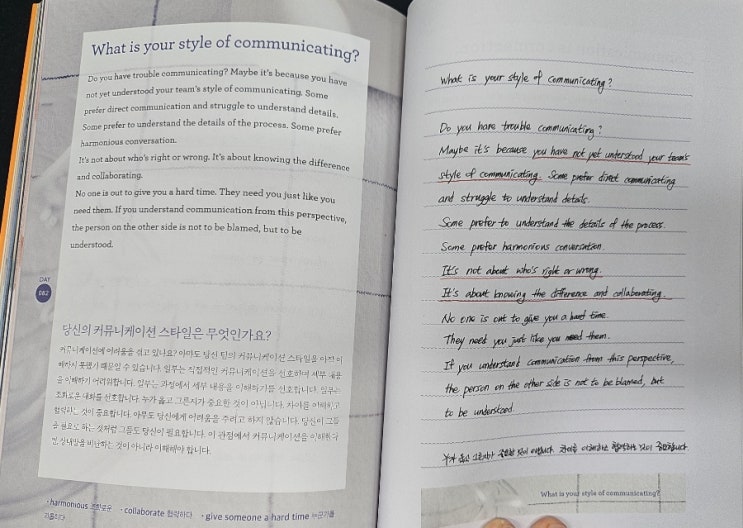 What is your style of communicating?
Do you have trouble communicating? Maybe it's because you have
not yet understood your team's style of communicating. Some
prefer direct communication and struggle to understand details.
Some prefer to understand the details of the process. Some prefer
harmonious conversation.
It's not about who's right or wrong. It's about knowing the difference
and collaborating.
No one is out to give you a hard time. They need you just like you
need them. If you understand communication from this perspective,
the person on the other side is not to be blamed, but to be
understood.
DAY
082
당신의 커뮤니케이션 스타일은 무엇인가요?
커뮤니케이션에 어려움을 겪고 있나요? 아마도 당신 팀의 커뮤니케이션 스타일을 아직 이
해하지 못했기 때문일 수 있습니다. 일부는 직접적인 커뮤니케이션을 선호하며 세부 내용
을 이해하기 어려워합니다. 일부는 과정에서 세부 내용을 이해하기를 선호합니다. 일부는
조화로운 대화를 선호합니다. 누가 옳고 그른지가 중요한 것이 아닙니다. 차이를 이해하고
협력하는 것이 중요합니다. 아무도 당신에게 어려움을 주려고 하지 않습니다. 당신이 그들
을 필요로 하는 것처럼 그들도 당신이 필요합니다. 이 관점에서 커뮤니케이션을 이해한다
면, 상대방을 비난하는 것이 아니라 이해해야 합니다.
· harmonious 조화로운 · collaborate 협력하다 · give someone a hard time 누군가를
힘들게 하다
What is your style of communicating?
Do you have trouble communicating?
Maybe it's because you have not yet understood your team's
style of communicating. Some prefer direct communicating
and struggle to understand details.
Some prefer to understand the details of the process.
Some prefer harmonious conversation.
It's not about who's right or wrong.
It's about knowing the difference and collaborating.
No one is out to give you a hard time.
They need you just like you need them.
If you understand communication from this perspective,
the person on the other side is not to be blamed, but
to be understood.
누가 옳고 그른지가 중요한 것이 아닙니다. 차이를 이해하고 협력하는 것이 중요합니다.
What is your style of communicating?